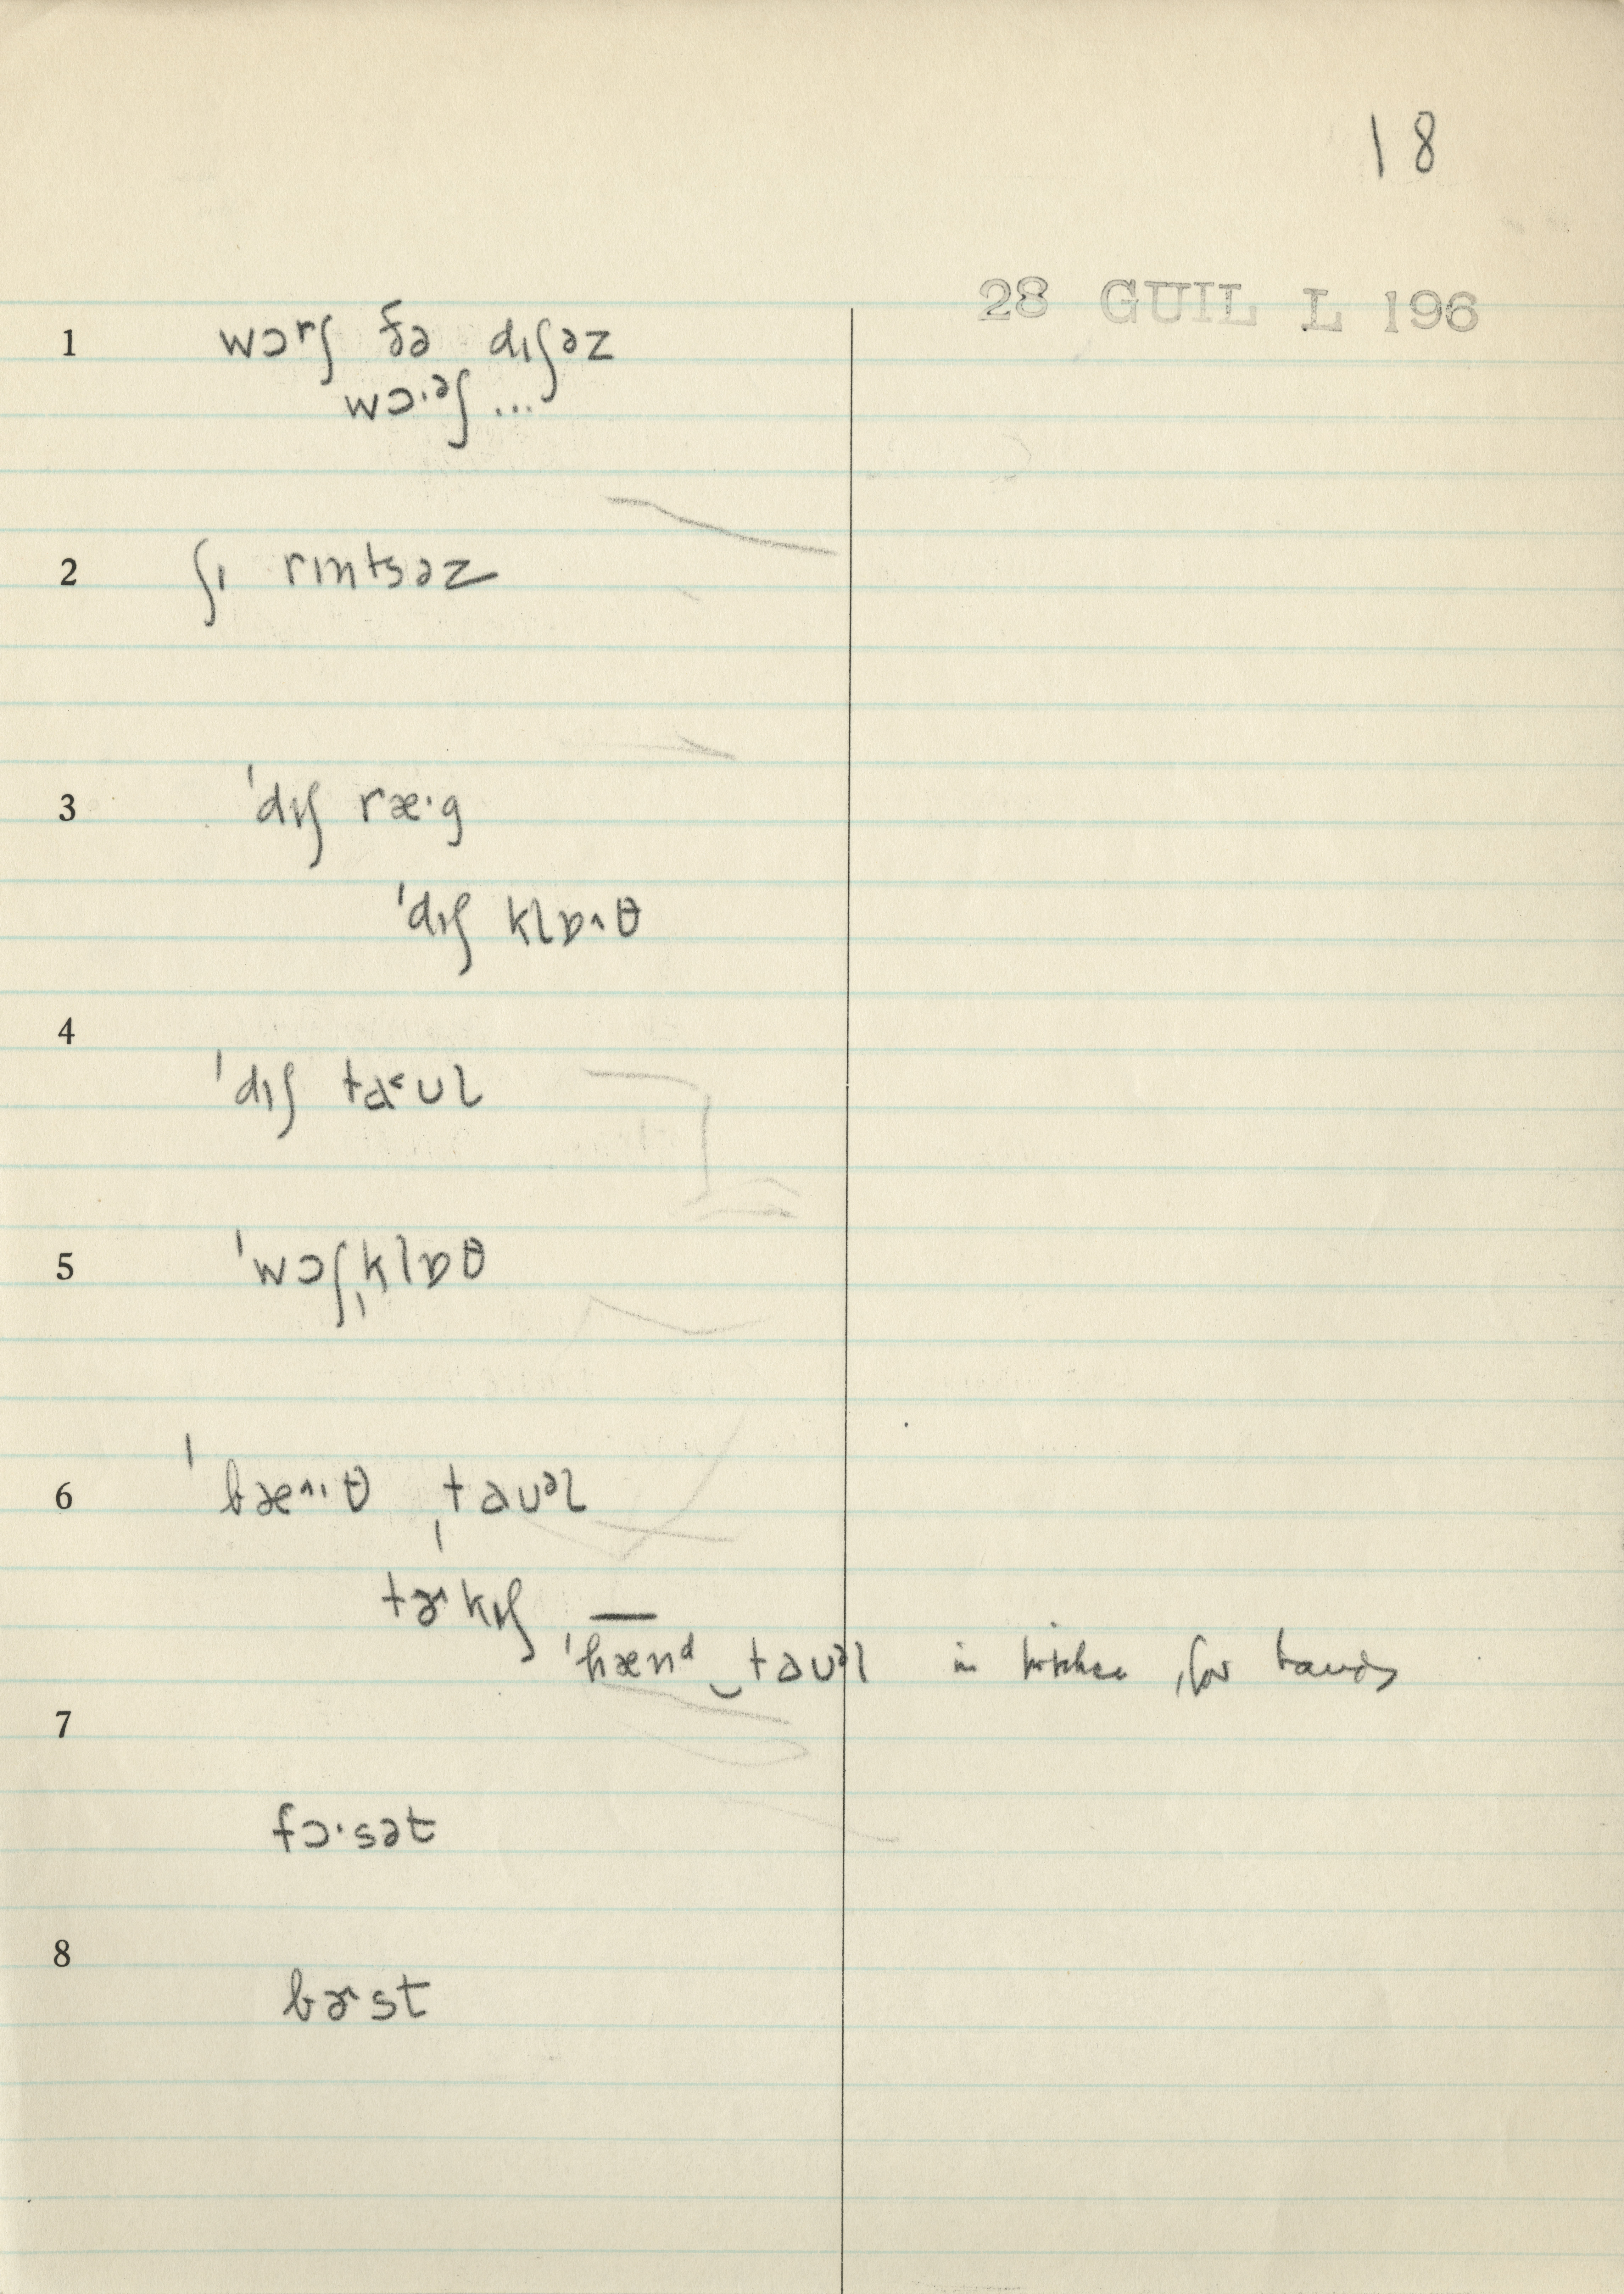 18
28 GUIL L 196
1 wɔʳʃ ðə dɪʃəz
wɔ·ᵊʃ ...
2 ʃɪ rɪntsəz
3 ˈdɪʃ ræ·g
ˈdɪʃ klɒ^θ
4
ˈdɪʃ tɑ˂ʊl
5 ˈwɔʃˌklɒθ
6 ˈbæ^·θ ˌtaʊᵊl
tɚkɪʃ —
ˈhænᵈ‿taʊᵊl in kitchen, for hands
7
fɔ·sət
8
bɚst